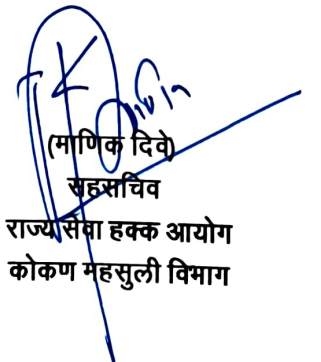 (माणिक दिवे)
सहसचिव
राज्य सेवा हक्क आयोग
कोकण महसुली विभाग